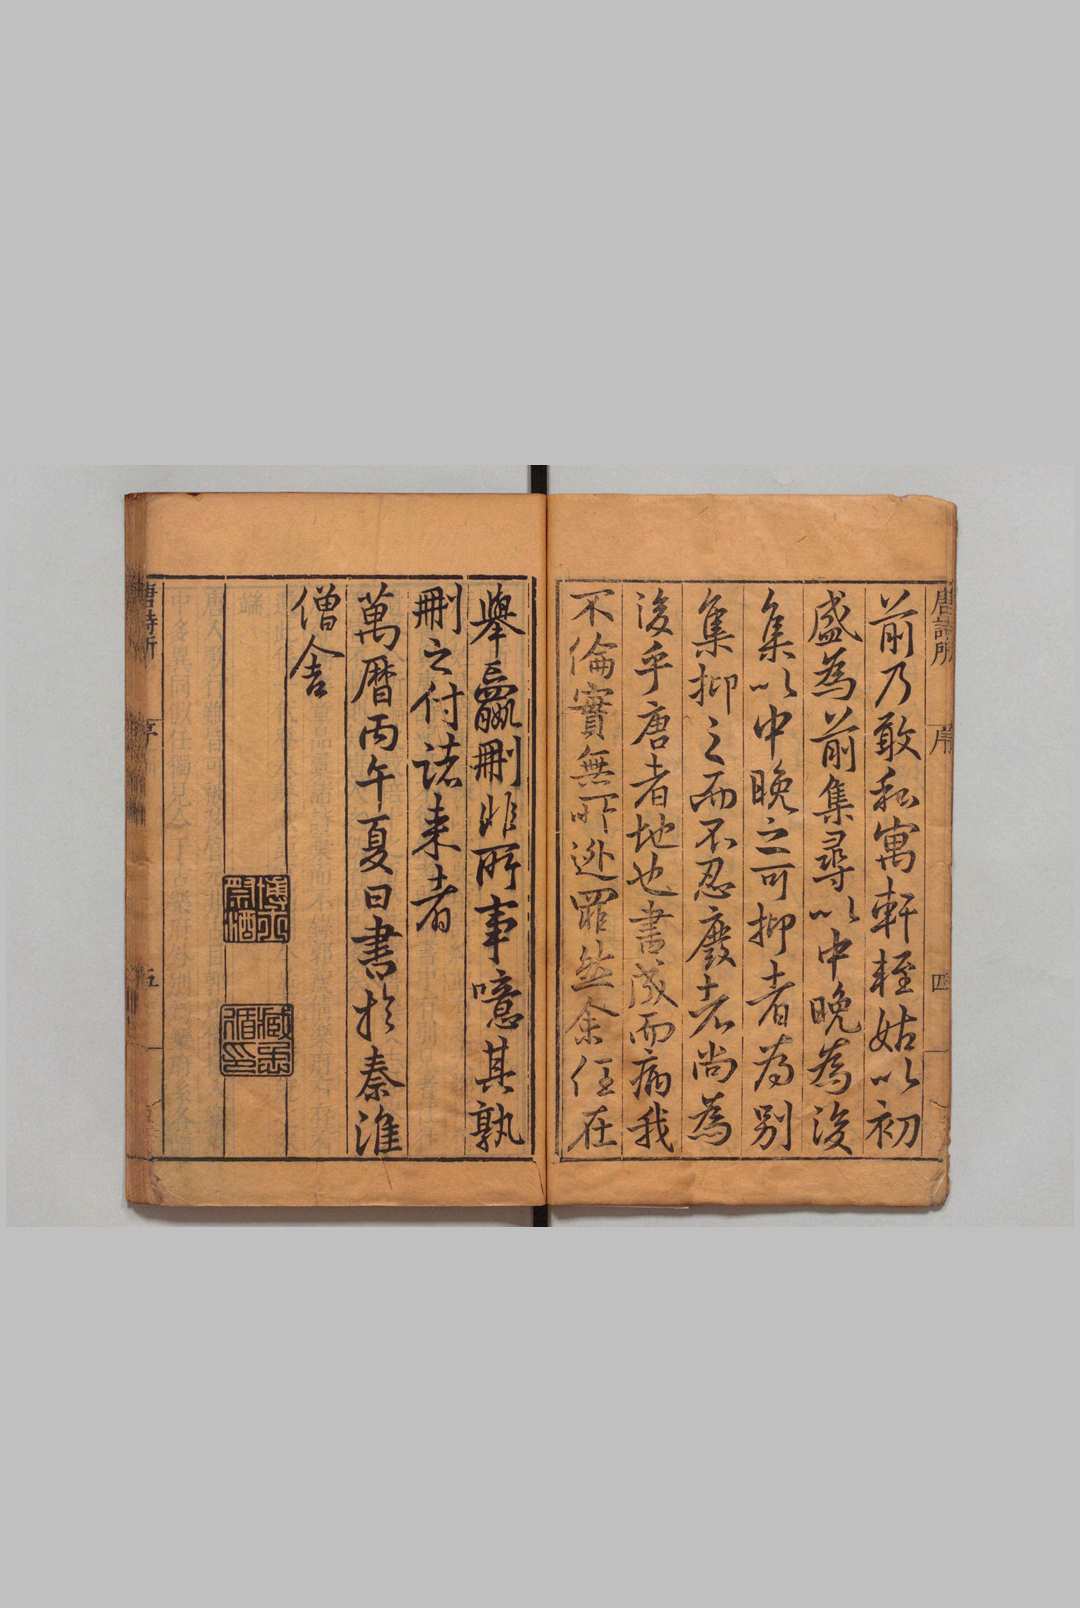 唐詩所
序
四
前乃敢私寓軒輊姑以初
盛為前集尋以中晚為後
集以中晚之可抑者為別
集抑之而不忍廢者尚為
後乎唐者地也書成而病我
不倫實無所逃罪然余任在
舉羸刪非所事噫其孰
刪之付諸来者
萬曆丙午夏日書於秦淮
僧舍
博士
祭酒
臧懋
循印
唐詩所
序
五